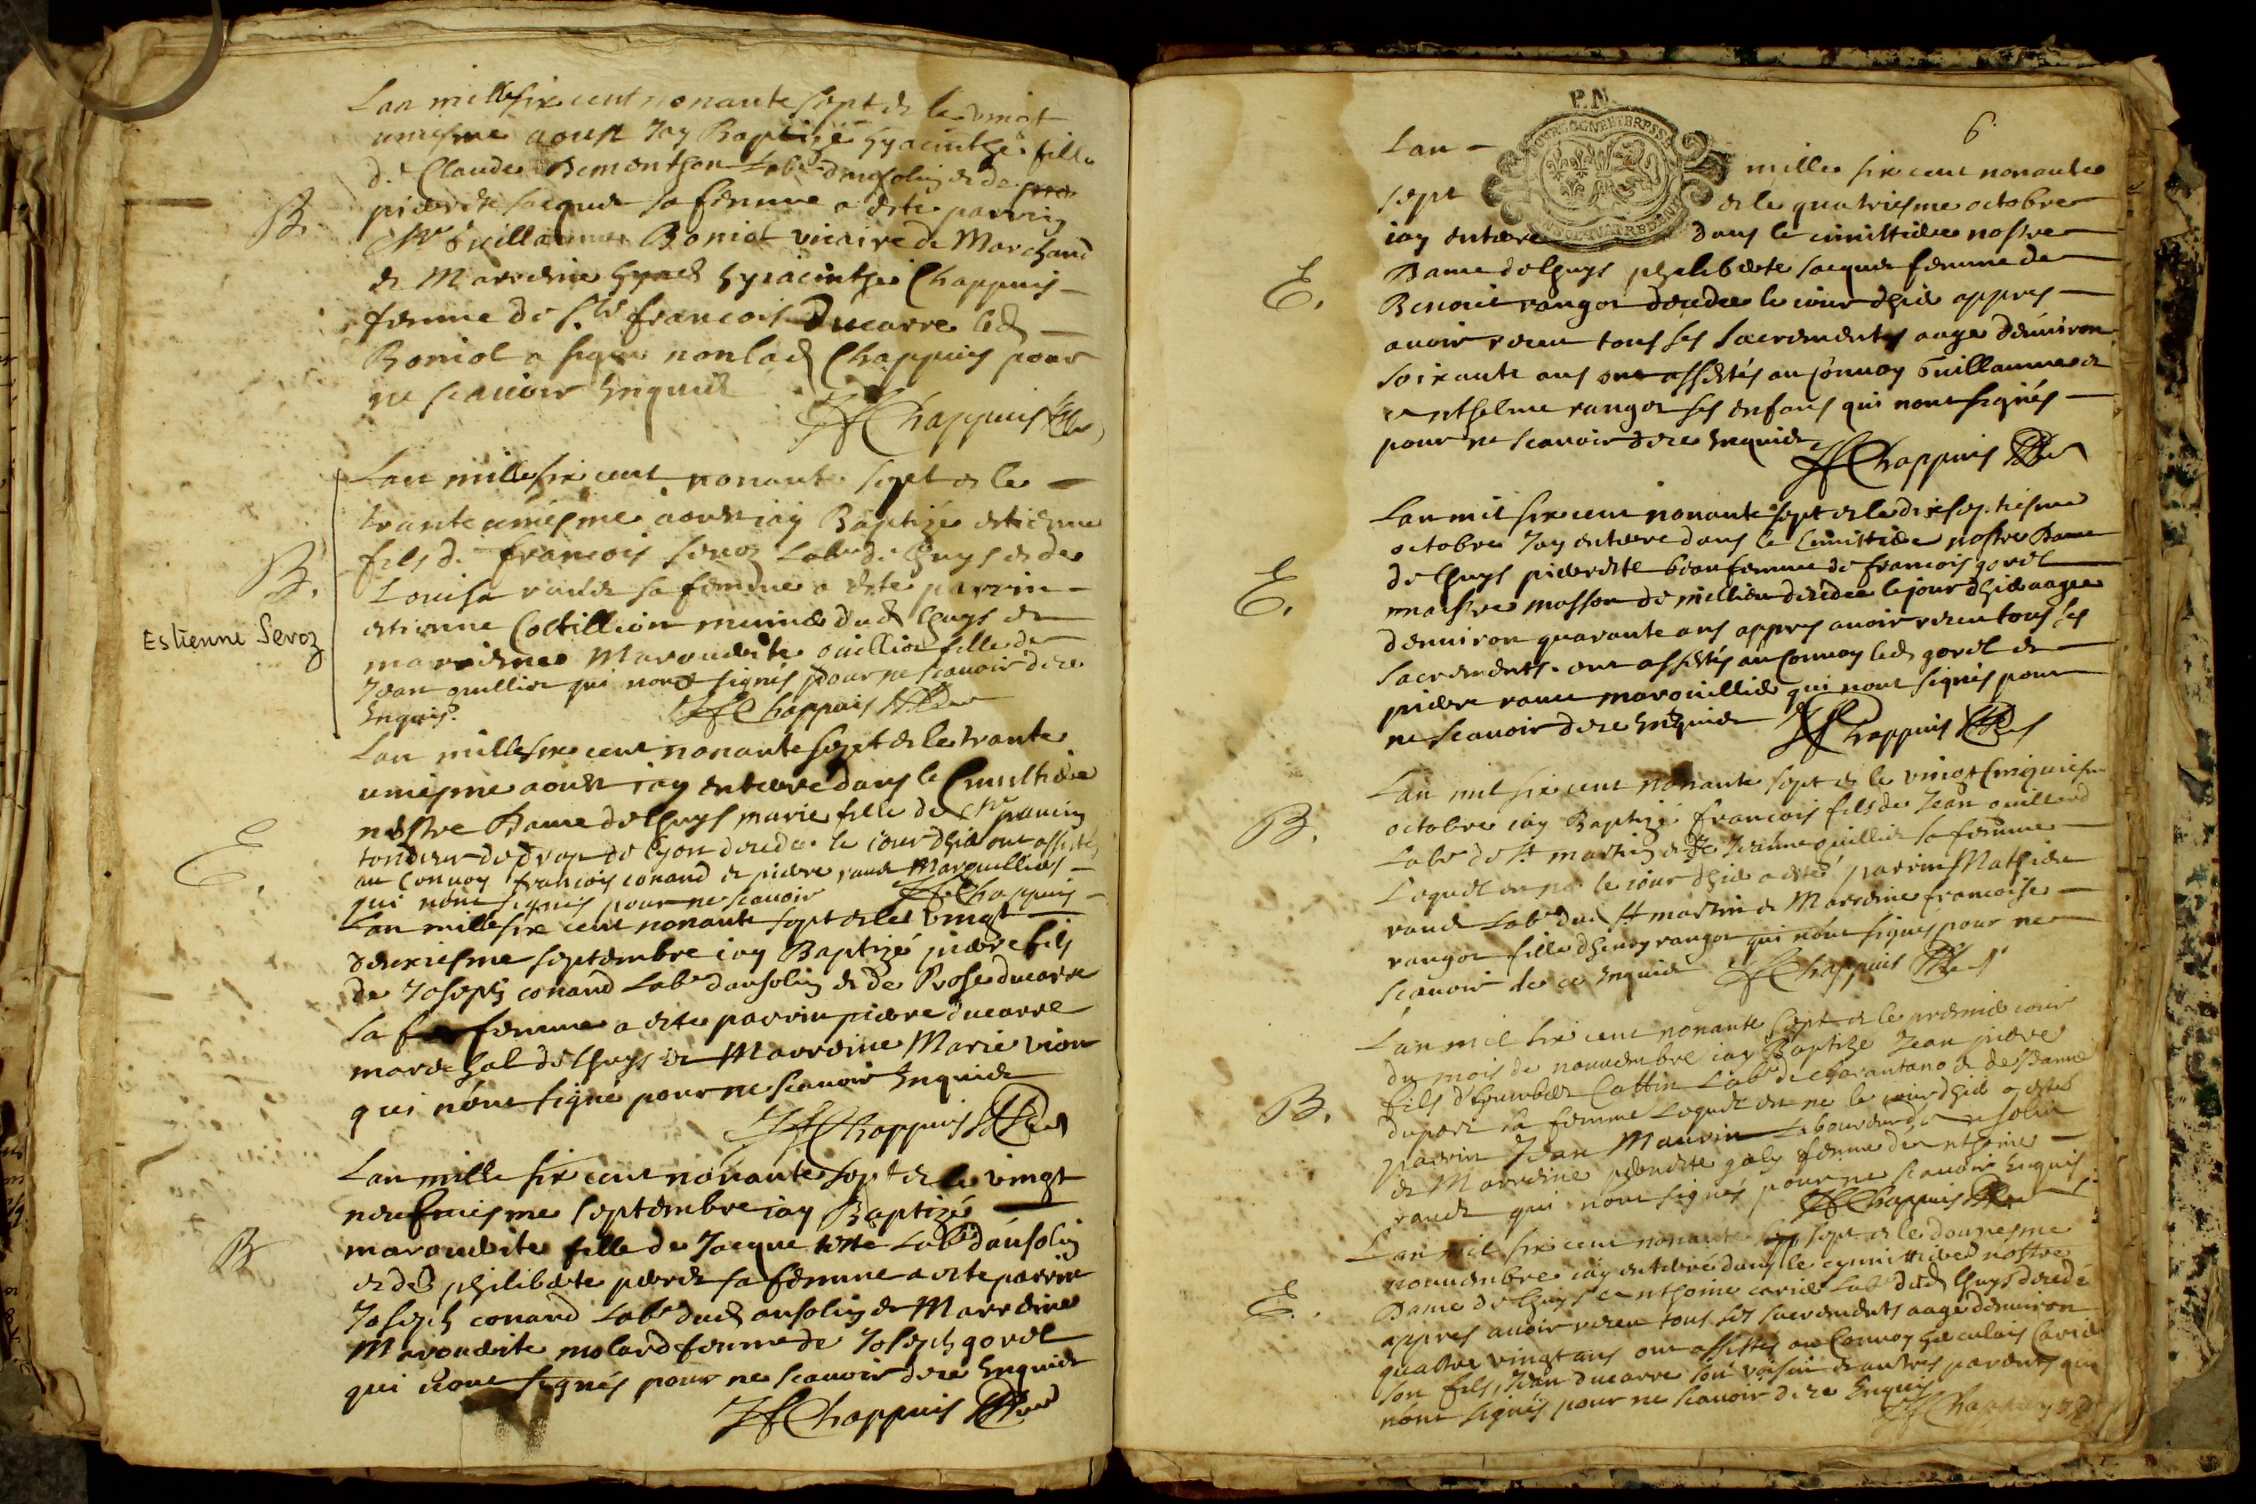 Lan mille six cent nonante sept & le vingt
uniesme aoust Jay Baptizé hyacinthe fille
de Claude Demonthon Lab dansolin & de
pierrete Jacquet sa femme a este parrin
Mr Guillaume Boniot vicaire de Marchand
& Marreine hyacinthe Chappuis
femme de Sr francois Ducarre led
Boniot a signé non lad Chappuis pour
ne scavoir Enquise
B.
JfChappuis
Lan mille six cent nonante sept & le
trante uniesme aoust iay Baptizé estienne
fils de francois Sevoz Lab de Cuys & de
Louise rande sa femme a este parrin
estienne Coltillion munié dud Cuys &
marreine Marguerite ouillie fille de
Jean ouillie qui nont signés pour ne scavoir dere
Enquis
B.
Estienne Sevoz
JfChappuis
Lan mille six cent nonante sept & le trante
uniesme aoust iay enterre dans le Cimittiere
nostre Dame de Cuys marie fille de Mr
tondeur de drap de Lyon decedee le iour dhié ont assistés
au Convoy francois conand & pierre rande Marguilliers
qui nont signés pour ne scavoir
E.
JfChappuis
Lan mille six cent nonante sept & le vingt
deuxiesme septembre iay Baptizé pierre fils
de Joseph conand Lab dansolin & de Rose ducarre
sa femme a este parrin pierre ducarre
mareschal de Cuys & Marreine Marie vion
qui nont signé pour ne scavoir Enquis
JfChappuis
Lan mille six cent nonante sept & le vingt
neufviesme septembre iay Baptizé
marguerite fille de Jacque teste Lab dansolin
& de philiberte perret sa femme a este parrin
Joseph conand Lab dud ansolin & Marreine
Marguerite molard femme de Joseph gorel
qui nont signés pour ne scavoir dere Enquis
B
JfChappuis
P.N.
6.
Lan mille six cent nonante
sept & le quatriesme octobre
iay enterre dans le cimittiere nostre
Dame de Cuys philiberte Jacquet femme de
Benoit rangot decedee le iour dhié appres
avoir receu tous ses sacrements aage denviron
soixante ans ont assistés au Convoy Guillaume &
Anthelme rangot ses enfans qui nont signés
pour ne scavoir dere Enquis
E.
JfChappuis
Lan mil six cent nonante sept & le dix septiesme
octobre Jay enterre dans le Cimittiere nostre Dame
de Cuys pierrete beau femme de francois gorel
maistre masson de millieu decedee le jour dhié aagee
denviron quarante ans appres avoir receu tous ses
sacrements ont assistés au Convoy led gorel &
pierre rande marguillié qui nont signés pour
ne scavoir dere Enquis
E.
JfChappuis
Lan mil six cent nonante sept & le vingt
octobre iay Baptizé francois fils de Jean ouillerd
Lab de St martin & de Jeanne ouillie sa femme
Lequel est né le iour dhié a esté parrin Mathieu
rande Lab dud St martin & Marreine francoise
rangot fille dhenry rangot qui nont signés pour ne
scavoir dere Enquis
B.
JfChappuis
Lan mil six cent nonante sept & le premié iour
du mois de novembre iay Baptizé Jean pierre
fils dhumbert Cattin Lab de charantano & de Jeanne
duport sa femme Lequel est né le iour dhié a esté
parrin Jean Maurin Laboureur dansolin
& Marreine pernete goly femme danthoine
rande qui nont signés pour ne scavoir Enquis
B.
JfChappuis
Lan mil six cent nonante sept & le douziesme
novembre iay enterré dans le cymittiere nostre
Dame de Cuys anthoine carrié Lab dud Cuys decedé
appres avoir receu tous ses sacrements aagé denviron
quattre vingt ans ont assistés au Convoy Carrié
son fils, Jean ducarre son voisin & autres parents qui
nont signés pour ne scavoir dere Enquis
E.
JfChappuis